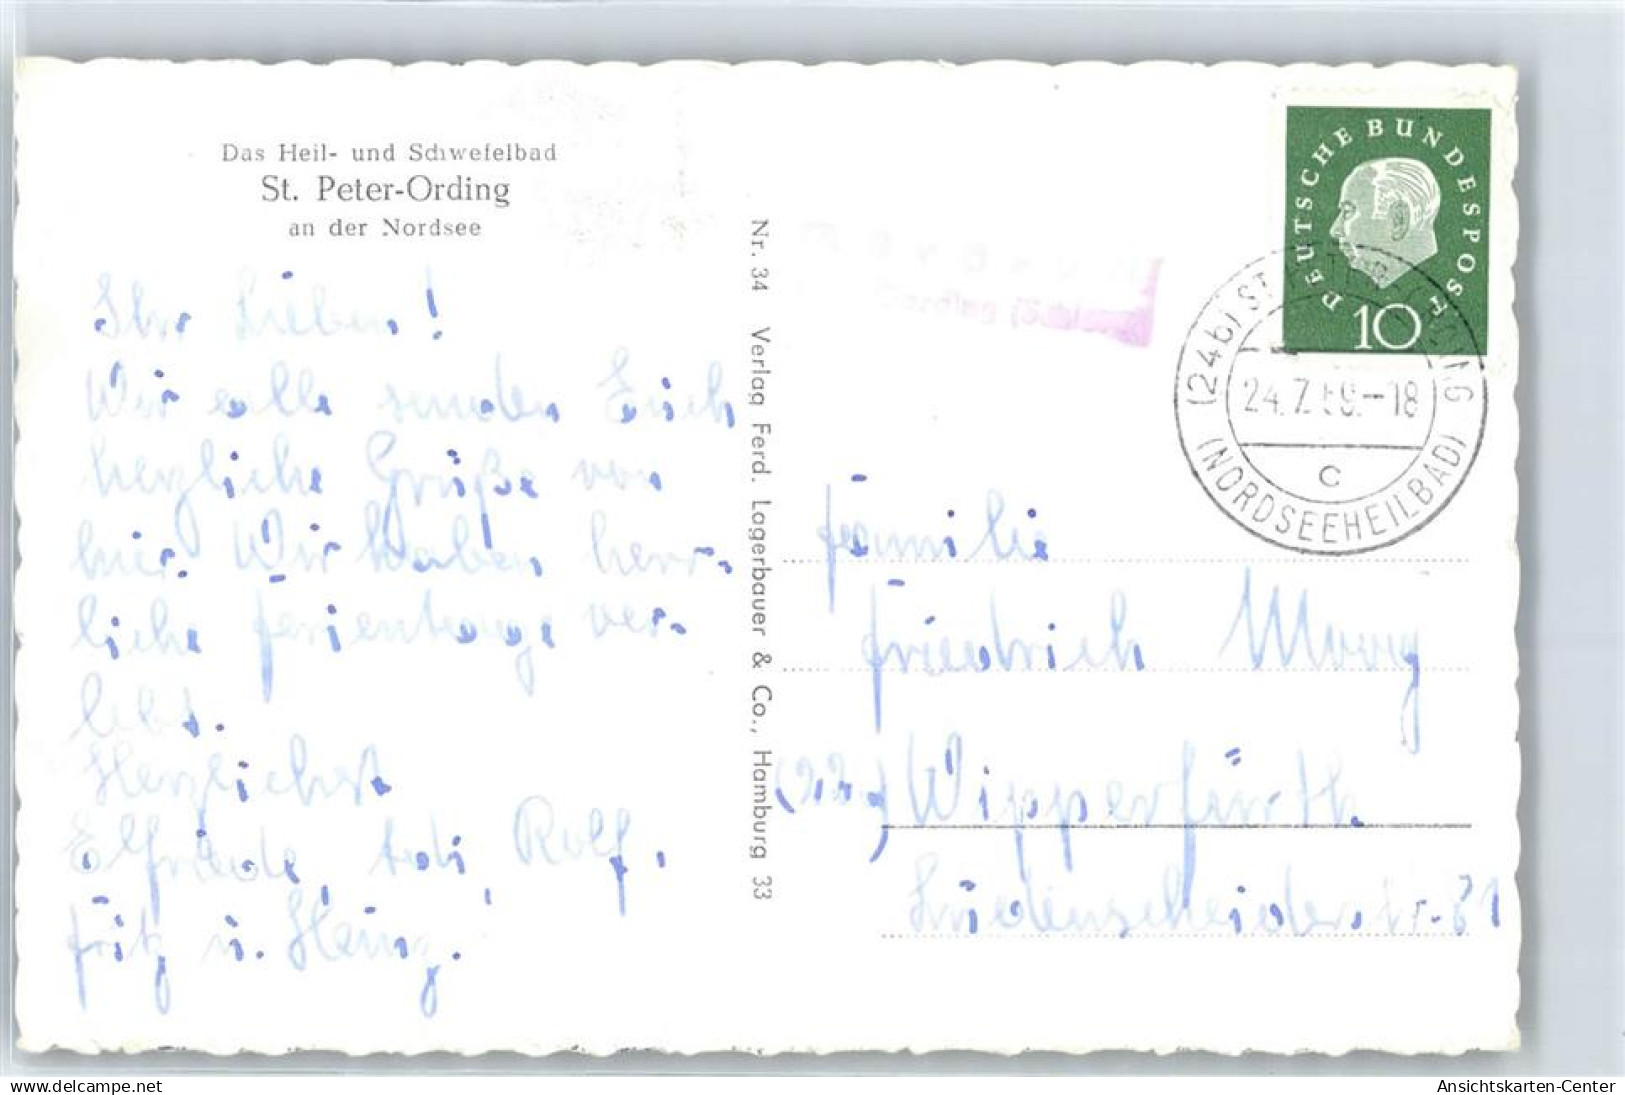 Das Heil- und Schwefelbad
St. Peter-Ording
an der Nordsee
Ihr Lieben!
Wir alle senden Euch
herzliche Grüße von
hier. Wir haben herr-
liche Ferientage ver-
lebt.
Herzlichst
Elfriede, Rolf,
Fritz u. Heinz.
Nr. 34 Verlag Ferd. Lagerbauer & Co., Hamburg 33
DEUTSCHE BUNDESPOST
10
(24b) ST. PETER-ORDING
24.7.59.-18
C
(NORDSEEHEILBAD)
Familie
Friedrich
(22a) Wipperfürth
Lüdenscheiderstr.
delcampe.net
Ansichtskarten-Center